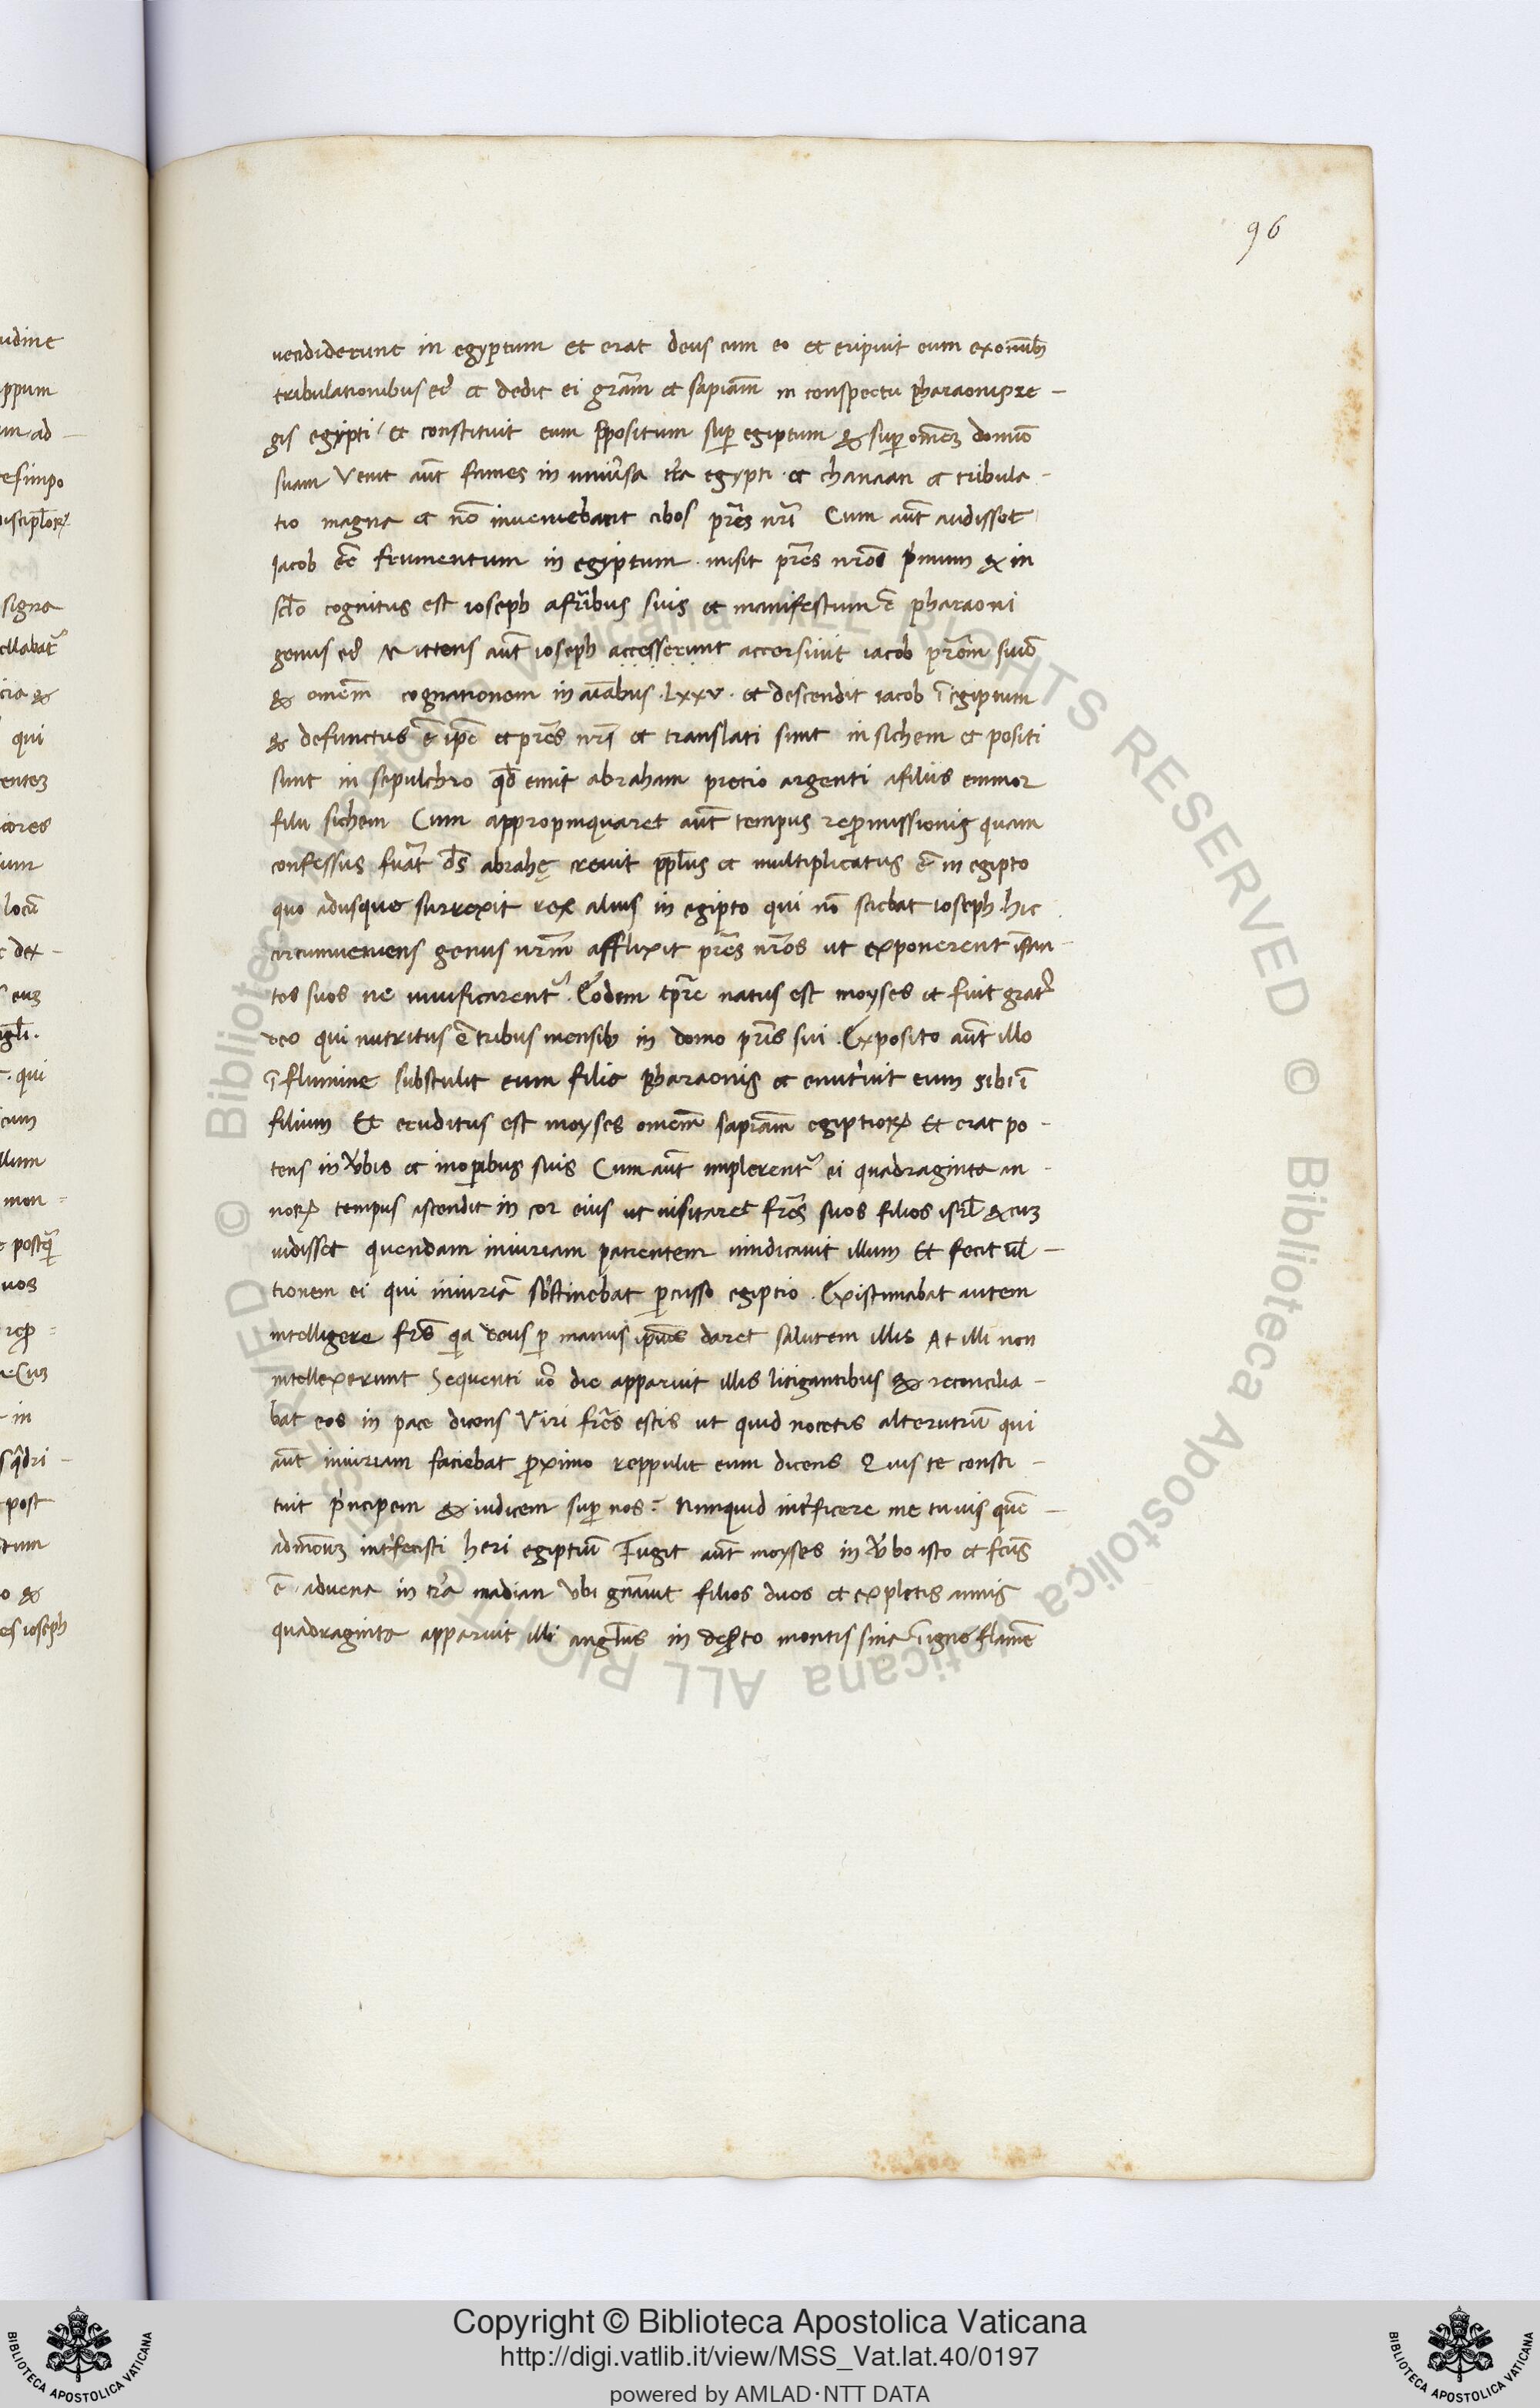 96
vendiderunt in egyptum et erat deus cum eo et eripuit eum ex omib
tribulationibus eiꝰ et dedit ei gr̃am et sapiam̃ in conspectu pharaonis re-
gis egypti et constituit eum p̃positum sup egiptum & sup omẽz domũ
suam Venit aũt fames in uniũsa tr̃a egypti et chanaan et tribula-
tio magna et nõ inueniebant cibos pr̃es nr̃i Cum aũt audisset
Iacob ẽe frumentum in egiptum misit pr̃es nr̃os pͥmum & in
sc̃do cognitus est ioseph a fr̃ibus suis et manifestum ẽ pharaoni
genus eiꝰ Mittens aũt ioseph accesserunt accersiuit iacob pr̃em suũ
& omem̃ cognationem in aĩabus .Lxxv. et descendit iacob ĩ egiptum
& defunctus ẽ ip̃e et pr̃es nr̃i et translati sunt in sichem et positi
sunt in sepulchro qđ emit abraham pretio argenti a filiis emmor
filii sichem Cum appropinquaret aũt tempus repromissionis quam
confessus fũat ds̃ abrahę creuit pp̃lus et multiplicatus ẽ in egipto
quo adusque surrexit rex alius in egipto qui nõ sciebat ioseph. hic
circumueniens genus nr̃m afflixit pr̃es nr̃os ut exponerent ĩfan-
tes suos ne uiuificarent᷑. Eodem tp̃re natus est moyses et fuit gratꝰ
deo qui nutritus ẽ tribus mensibꝫ in domo pr̃is sui. Exposito aũt illo
ĩ flumine substulit eum filia Pharaonis et enutͥuit eum sibi ĩ
filium Et eruditus est moyses omem̃ sapiam̃ egiptioꝝ Et erat po-
tens in ũbis et in opibus suis Cum aũt implerent᷑ ei quadraginta an-
noꝝ tempus ascendit in cor eius ut uisitaret fr̃es suos filios isrl̃ & cuz
uidisset quendam iniuriam patientem uindicauit illum Et fecit ul̃-
tionem ei qui iniuriã sustinebat pcusso egiptio. Existimabat autem
intelligere fr̃s qͥa deus p manus ipĩus daret salutem illis At illi non
intellexerunt Sequenti ũo die apparuit illis litigantibus & reconcilia-
bat eos in pace dicens Viri fr̃es estis ut quid nocetis alterutrũ qui
aũt iniuriam faciebat pximo reppulit eum dicens Quis te consti-
tuit pͥncipem & iudicem sup nos? Nunquid int̃ficere me tu uis quẽ-
admoduz int̃fecisti heri egiptiũ Fugit aũt moyses in ũbo isto et fc̃us
ẽ aduena in tr̃a madian ubi gñauit filios duos et expletis annis
quadraginta apparuit illi angl̃us in dest̃o montis sina ĩ igne flam̃e
Copyright © Biblioteca Apostolica Vaticana
http://digi.vatlib.it/view/MSS_Vat.lat.40/0197
powered by AMLAD·NTT DATA